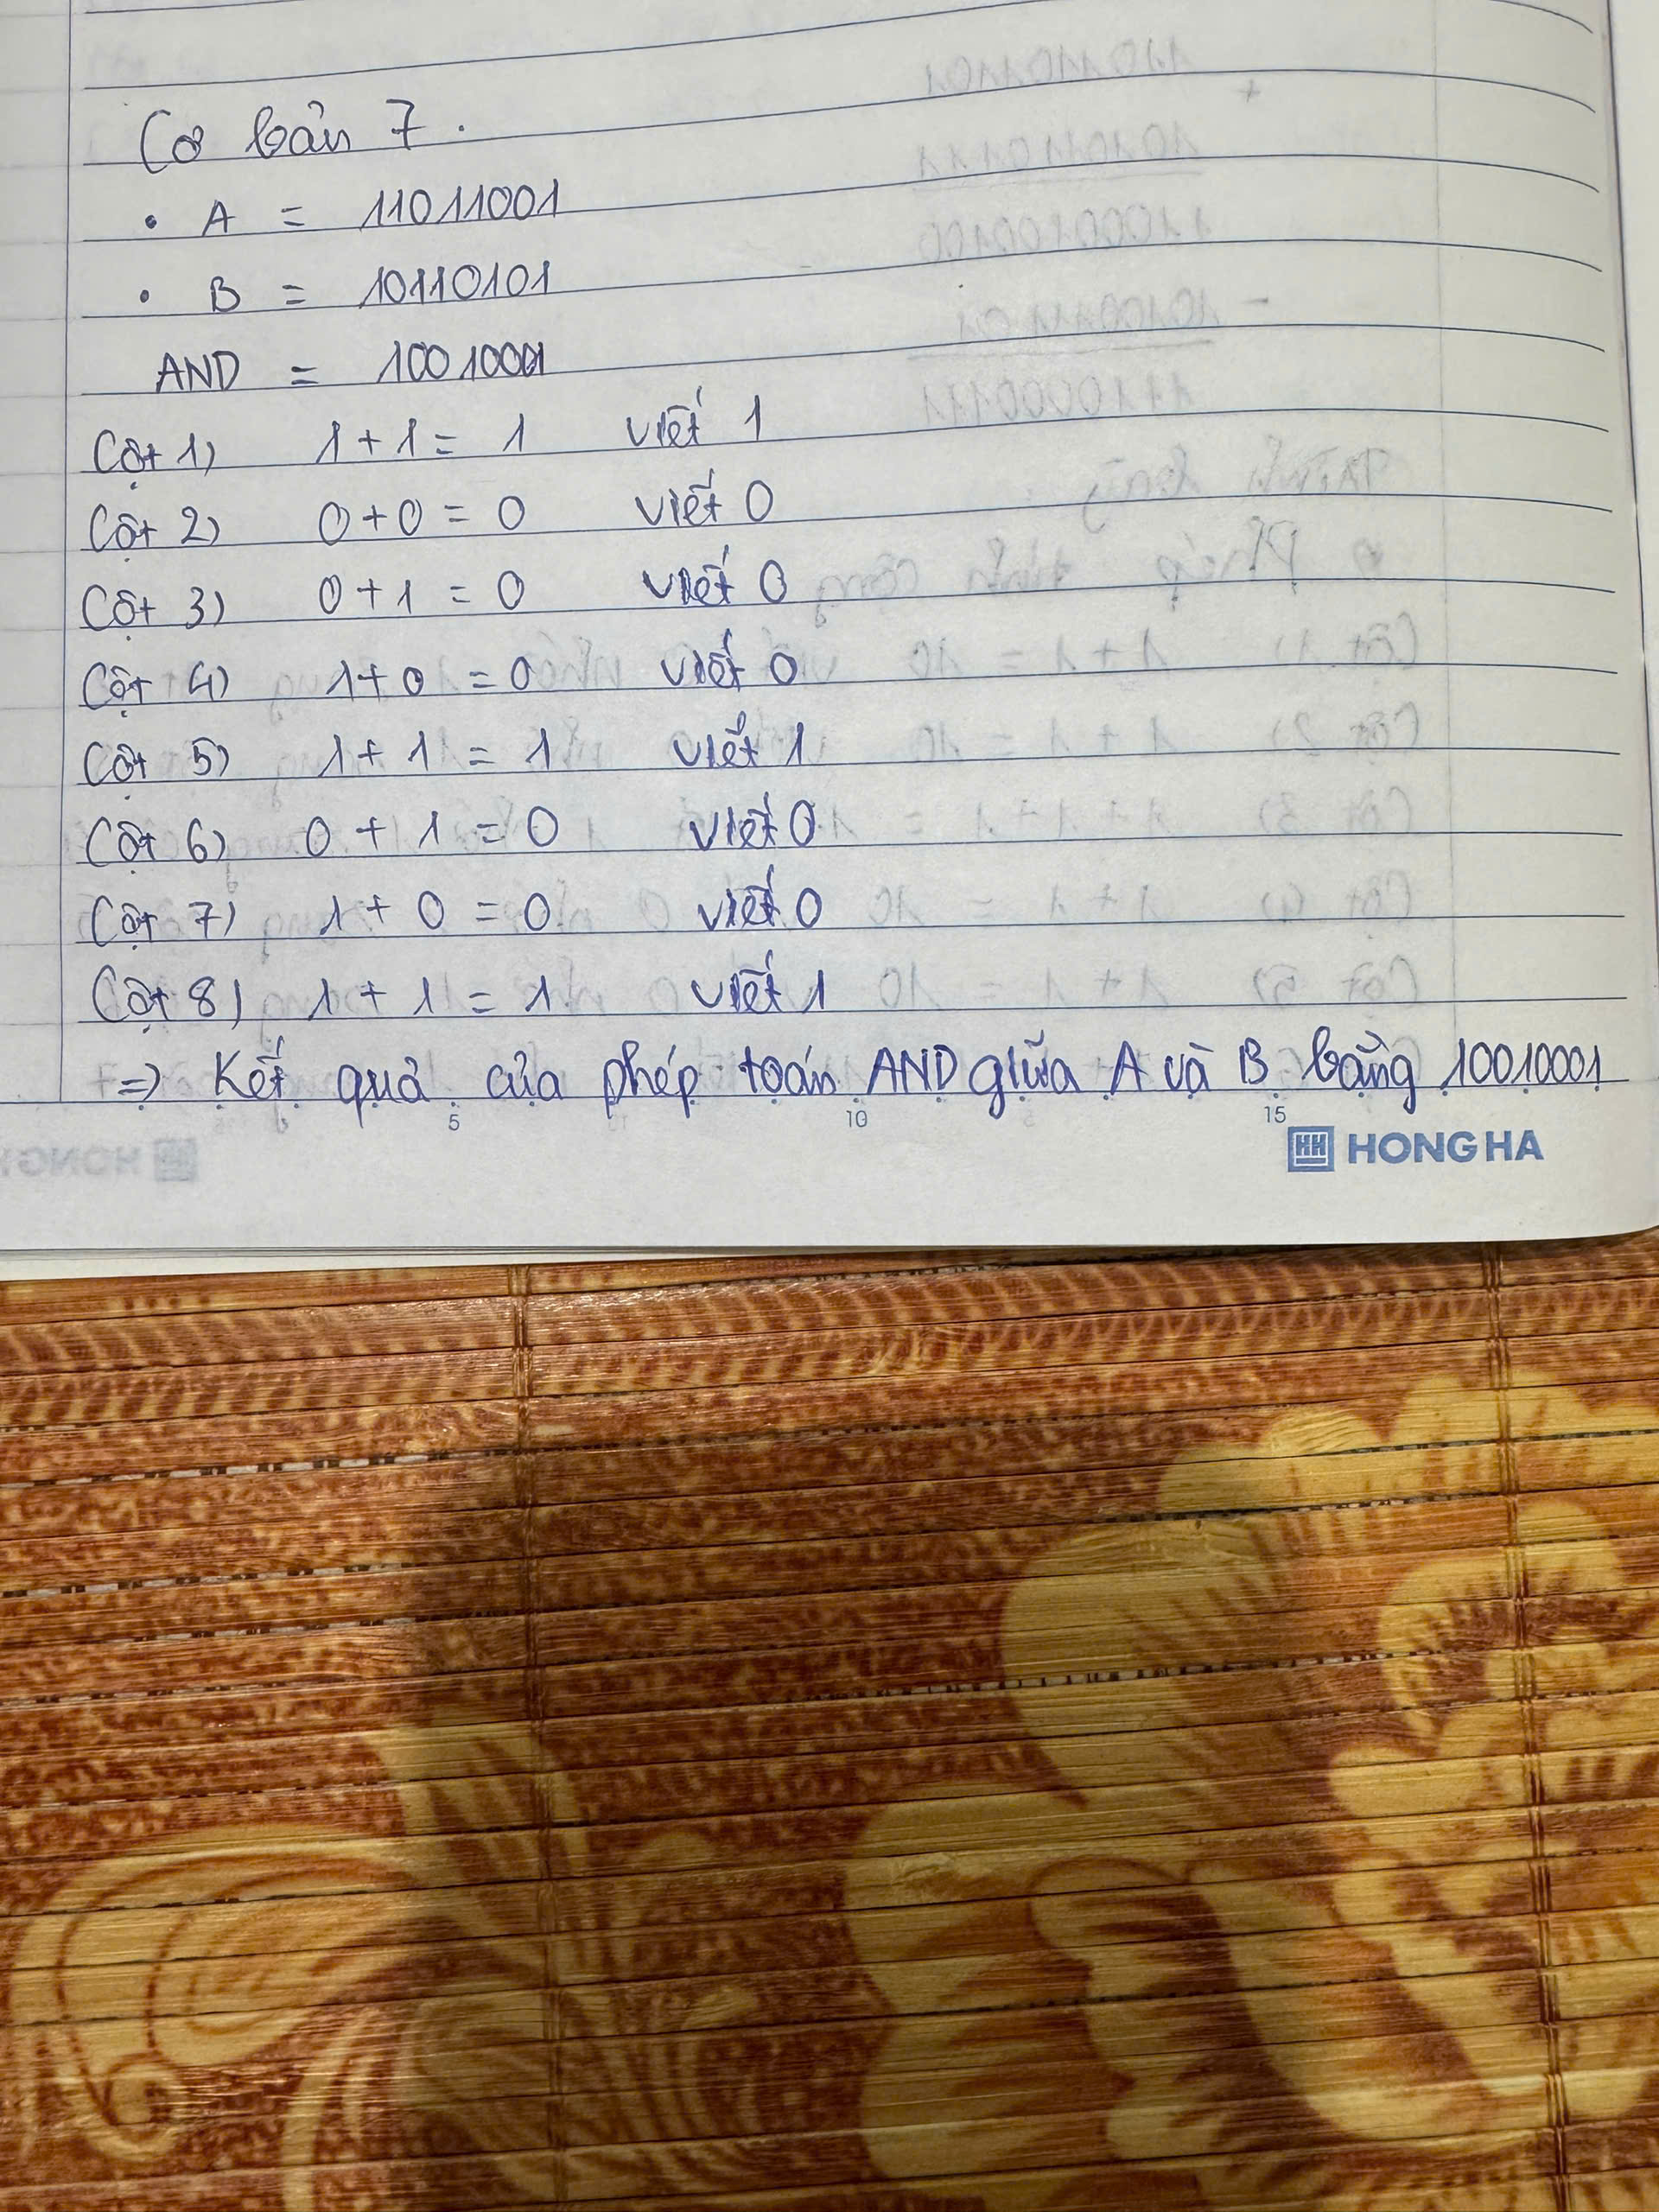 Cơ bản 7.
• A = 11011001
• B = 10110101
AND = 10010001
Cột 1) 1 + 1 = 1 viết 1
Cột 2) 0 + 0 = 0 viết 0
Cột 3) 0 + 1 = 0 viết 0
Cột 4) 1 + 0 = 0 viết 0
Cột 5) 1 + 1 = 1 viết 1
Cột 6) 0 + 1 = 0 viết 0
Cột 7) 1 + 0 = 0 viết 0
Cột 8) 1 + 1 = 1 viết 1
=> Kết quả của phép toán AND giữa A và B bằng 10010001
5 10 15
HH HONG HA